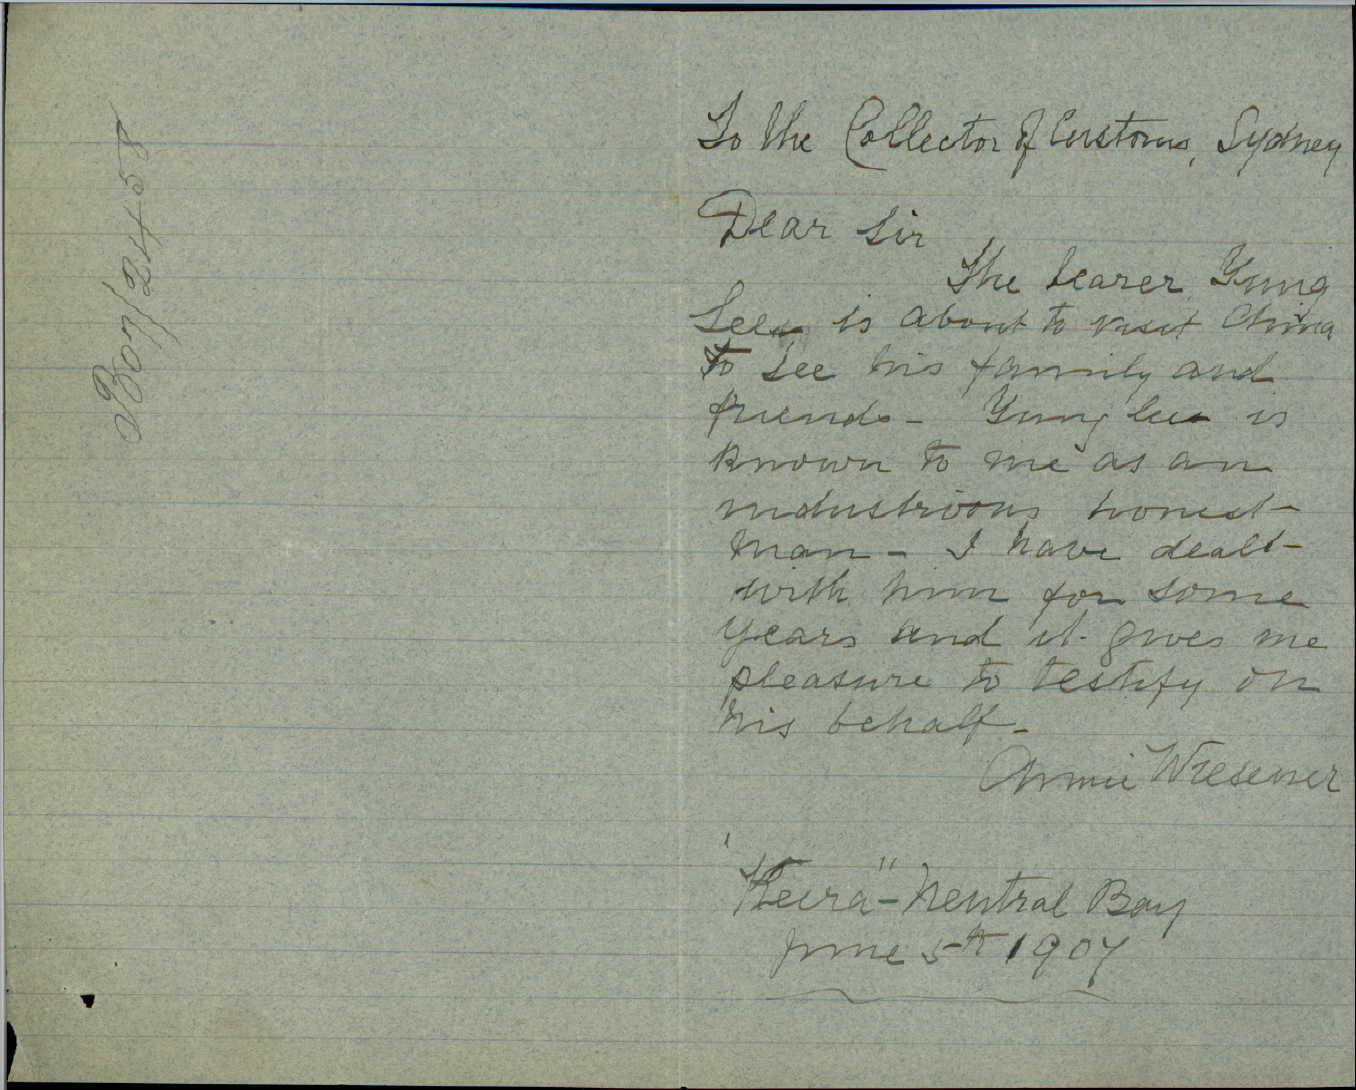 To the Collector of Customs, Sydney
Dear Sir
The bearer Yung
Lee is about to visit China
to see his family and
friends - Yung Lee is
known to me as an
industrious honest
man - I have dealt
with him for some
years and it gives me
pleasure to testify on
his behalf -
Annie Wiesener
"Keira" - Neutral Bay
June 5th 1907